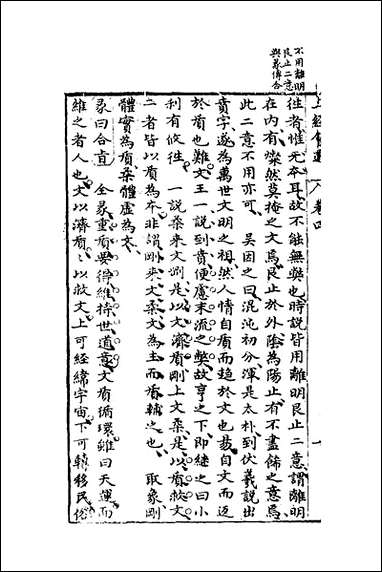 不用離明
艮止二意
與彖傳合
卷四
徃者惟无本耳故不能無弊也時說皆用離明艮止二意謂離明
在内有燦然莫掩之文焉艮止於外隂為陽止有不盡餙之意焉
此二意不用亦可 吴因之曰混沌初分渾是太朴到伏羲說出
賁字遂為萬世文明之祖然人情自質而趋於文也易自文而返
於質也難文王一說到賁便慮末流之弊故亨之下即継之曰小
利有攸徃 一說柔来文剛是以文濟質剛上文柔是以質救文
二者皆以質為本非謂剛来文柔文為主而質輔之也 取象剛
體實為質柔體虚為文
彖曰合直 全彖重質要得維持世道意文質循環雖曰天運而
維之者人也文以濟質々以救文上可経緯宇宙下可轉移民俗